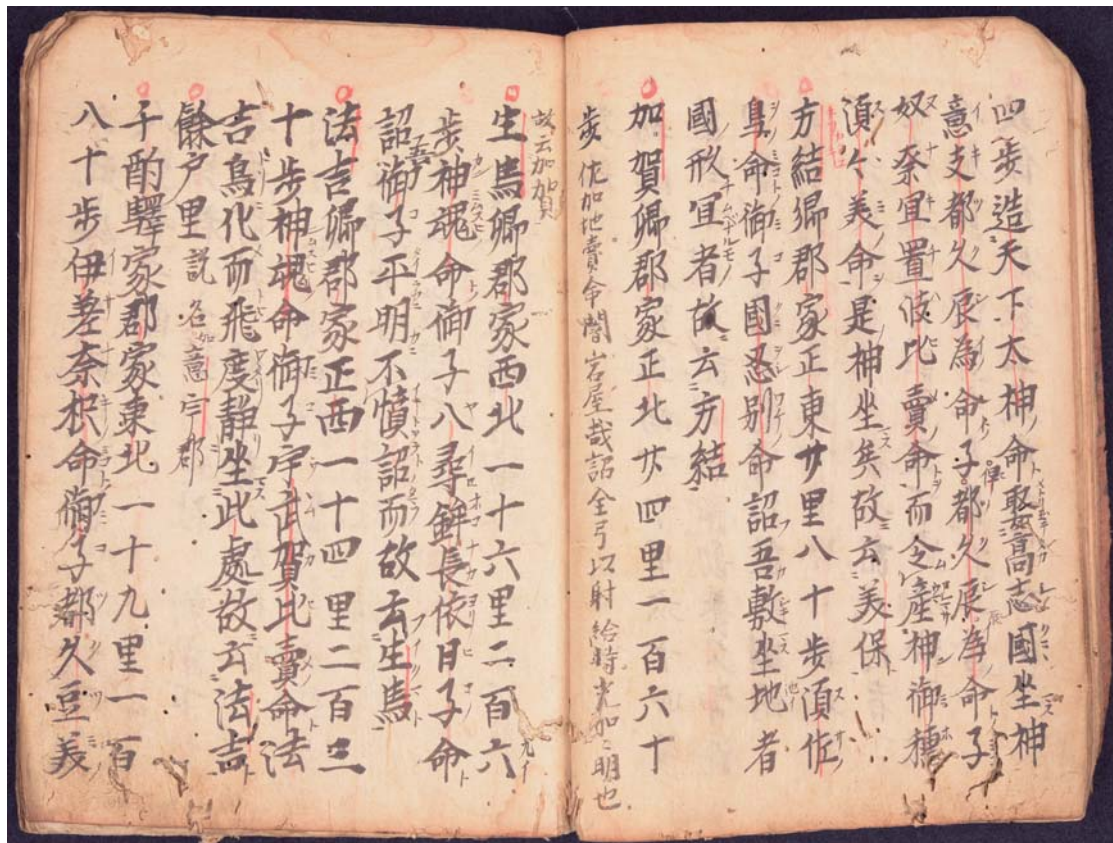 四歩造天下太神命娶高志國坐神
意支都久辰為命子都久辰為命子
奴奈宜置波比賣命而令産神御穂
須々美命是神坐矣故云美保
方結郷郡家正東廿里八十歩須佐
烏命御子國忍別命詔吾敷坐地者
國形宜者故云方結
加賀郷郡家正北廿四里一百六十
歩佐加地賣命闇岩屋哉詔金弓以射給時光加々明也
故云加加賀
生馬郷郡家西北一十六里二百六
歩神魂命御子八尋鉾長依日子命
詔吾御子平明不憤詔而故云生馬
法吉郷郡家正西一十四里二百三
十歩神魂命御子宇武賀比賣命法
吉鳥化而飛度静坐此處故云法吉
餘戸里説名如意宇郡
千酌驛家郡家東北一十九里一百
八十歩伊差奈枳命御子都久豆美